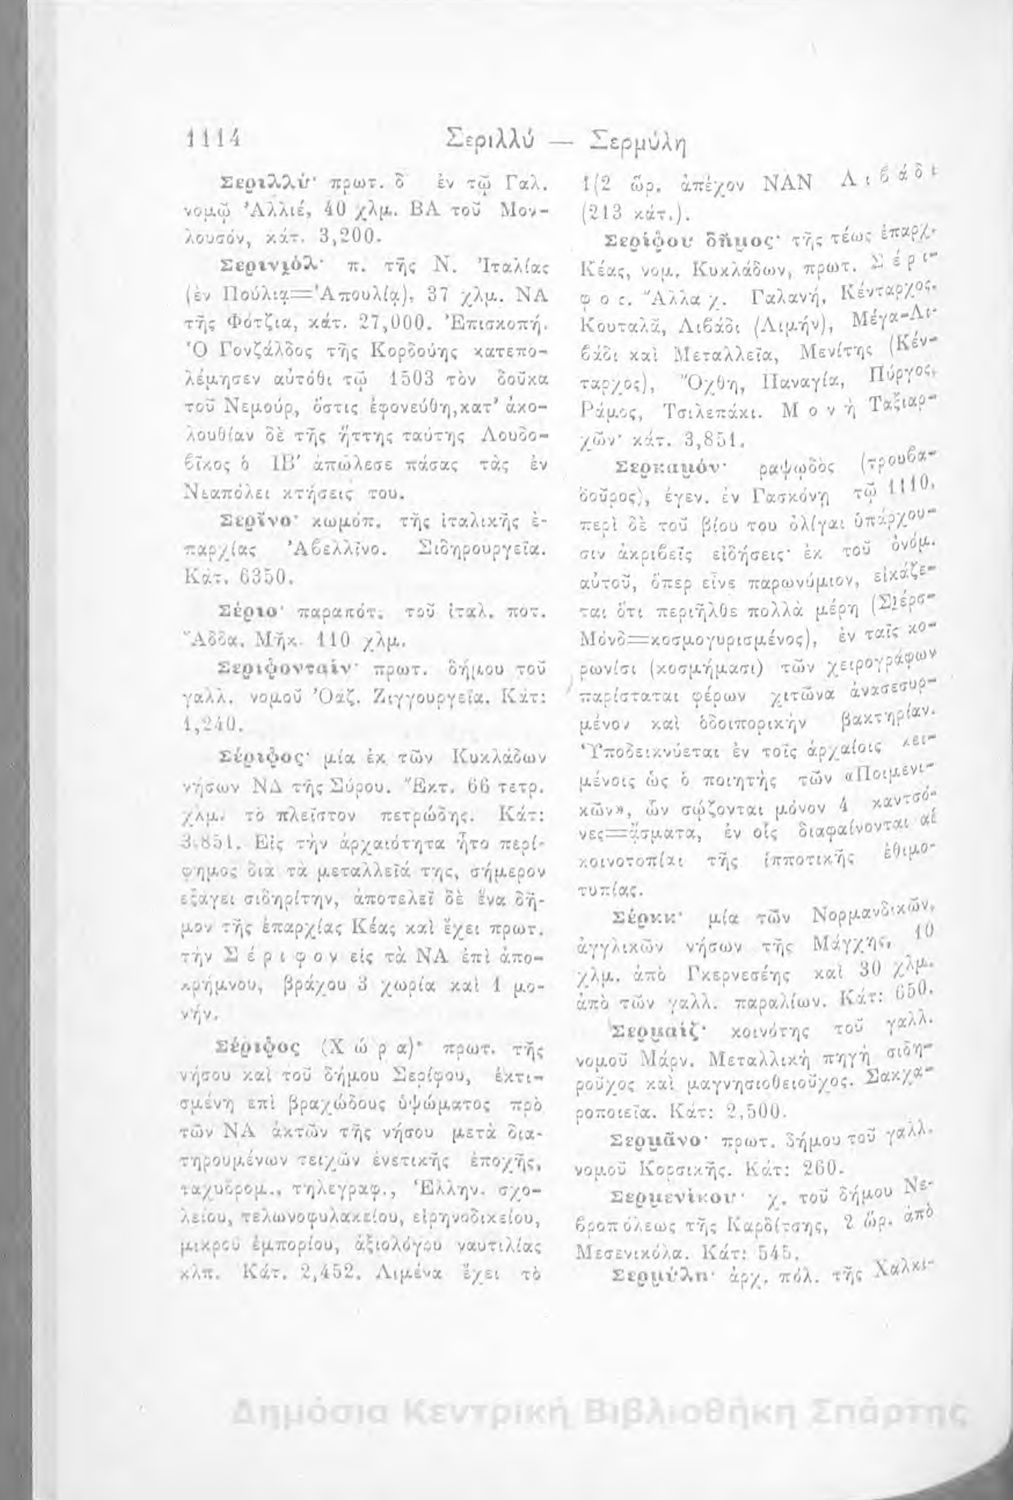 1114 Σεριλλύ — Σερμύλη
Σεριλλύ· πρωτ. δ ἐν τῷ Γαλ.
νομῷ Ἀλλιέ, 40 χλμ. ΒΑ τοῦ Μον-
λουσόν, κάτ. 3,200.
Σερινιόλ· π. τῆς Ν. Ἰταλίας
(ἐν Πούλιᾳ=Ἀπουλίᾳ), 37 χλμ. ΝΑ
τῆς Φότζια, κάτ. 27,000. Ἐπισκοπή.
Ὁ Γονζάλδος τῆς Κορδούης κατεπο-
λέμησεν αὐτόθι τῷ 1503 τὸν δοῦκα
τοῦ Νεμούρ, ὅστις ἐφονεύθη, κατ' ἀκο-
λουθίαν δὲ τῆς ἥττης ταύτης Λουδο-
βῖκος ὁ ΙΒ' ἀπώλεσε πάσας τὰς ἐν
Νεαπόλει κτήσεις του.
Σερῖνο· κωμόπ. τῆς ἰταλικῆς ἐ-
παρχίας Ἀβελλῖνο. Σιδηρουργεῖα.
Κάτ. 6350.
Σέριο· παραπότ. τοῦ ἰταλ. ποτ.
Ἄδδα. Μῆκ. 110 χλμ.
Σεριφονταίν· πρωτ. δήμου τοῦ
γαλλ. νομοῦ Ὀάζ. Ζιγγουργεῖα. Κάτ:
1,240.
Σέριφος· μία ἐκ τῶν Κυκλάδων
νήσων ΝΔ τῆς Σύρου. Ἔκτ. 66 τετρ.
χλμ. τὸ πλεῖστον πετρώδης. Κάτ:
3,851. Εἰς τὴν ἀρχαιότητα ἦτο περί-
φημος διὰ τὰ μεταλλεῖά της, σήμερον
ἐξάγει σιδηρίτην, ἀποτελεῖ δὲ ἕνα δῆ-
μον τῆς ἐπαρχίας Κέας καὶ ἔχει πρωτ.
τὴν Σέριφον εἰς τὰ ΝΑ ἐπὶ ἀπο-
κρήμνου, βράχου 3 χωρία καὶ 1 μο-
νήν.
Σέριφος (Χώρα)· πρωτ. τῆς
νήσου καὶ τοῦ δήμου Σερίφου, ἐκτι-
σμένη ἐπὶ βραχώδους ὑψώματος πρὸ
τῶν ΝΑ ἀκτῶν τῆς νήσου μετὰ δια-
τηρουμένων τειχῶν ἐνετικῆς ἐποχῆς,
ταχυδρομ., τηλεγραφ., Ἑλλην. σχο-
λείου, τελωνοφυλακείου, εἰρηνοδικείου,
μικροῦ ἐμπορίου, ἀξιολόγου ναυτιλίας
κλπ. Κάτ. 2,452. Λιμένα ἔχει τὸ
1(2 ὥρ. ἀπέχον ΝΑΝ Λιβάδι
(213 κάτ.).
Σερίφου δῆμος· τῆς τέως ἐπαρχ.
Κέας, νομ. Κυκλάδων, πρωτ. Σέρι-
φος. Ἄλλα χ. Γαλανή, Κένταρχος.
Κουταλᾶ, Λιβάδι (Λιμήν), Μέγα-Λι-
βάδι καὶ Μεταλλεῖα, Μενίτης (Κέν-
ταρχος), Ὄχθη, Παναγία, Πύργος,
Ράμος, Τσιλεπάκι. Μονὴ Ταξιαρ-
χῶν· κάτ. 3,851.
Σερκαμόν· ραψῳδὸς (τρουβα-
δοῦρος), ἐγεν. ἐν Γασκόνῃ τῷ 1110.
περὶ δὲ τοῦ βίου του ὀλίγαι ὑπάρχου-
σιν ἀκριβεῖς εἰδήσεις· ἐκ τοῦ ὀνόμ.
αὐτοῦ, ὅπερ εἶνε παρωνύμιον, εἰκάζε-
ται ὅτι περιῆλθε πολλὰ μέρη (Σιέρσ-
Μόνδ=κοσμογυρισμένος), ἐν ταῖς κο-
ρωνίσι (κοσμήμασι) τῶν χειρογράφων
παρίσταται φέρων χιτῶνα ἀνασεσυρ-
μένον καὶ ὁδοιπορικὴν βακτηρίαν.
Ὑποδεικνύεται ἐν τοῖς ἀρχαίοις κει-
μένοις ὡς ὁ ποιητὴς τῶν «Ποιμενι-
κῶν», ὧν σῴζονται μόνον 4 καντσό-
νες=ᾄσματα, ἐν οἷς διαφαίνονται αἱ
κοινοτοπίαι τῆς ἱπποτικῆς ἐθιμο-
τυπίας.
Σέρκκ· μία τῶν Νορμανδικῶν,
ἀγγλικῶν νήσων τῆς Μάγχης, 10
χλμ. ἀπὸ Γκερνεσέης καὶ 30 χλμ.
ἀπὸ τῶν γαλλ. παραλίων. Κάτ: 650.
Σερμαίζ· κοινότης τοῦ γαλλ.
νομοῦ Μάρν. Μεταλλικὴ πηγὴ σιδη-
ροῦχος καὶ μαγνησιοθειοῦχος. Σακχα-
ροποιεῖα. Κάτ: 2,500.
Σερμᾶνο· πρωτ. δήμου τοῦ γαλλ.
νομοῦ Κορσικῆς. Κάτ: 260.
Σερμενίκου· χ. τοῦ δήμου Νε-
βροπόλεως τῆς Καρδίτσης, 2 ὥρ. ἀπὸ
Μεσενικόλα. Κάτ: 545.
Σερμύλη· ἀρχ. πόλ. τῆς Χαλκι-
Δημόσια Κεντρική Βιβλιοθήκη Σπάρτης